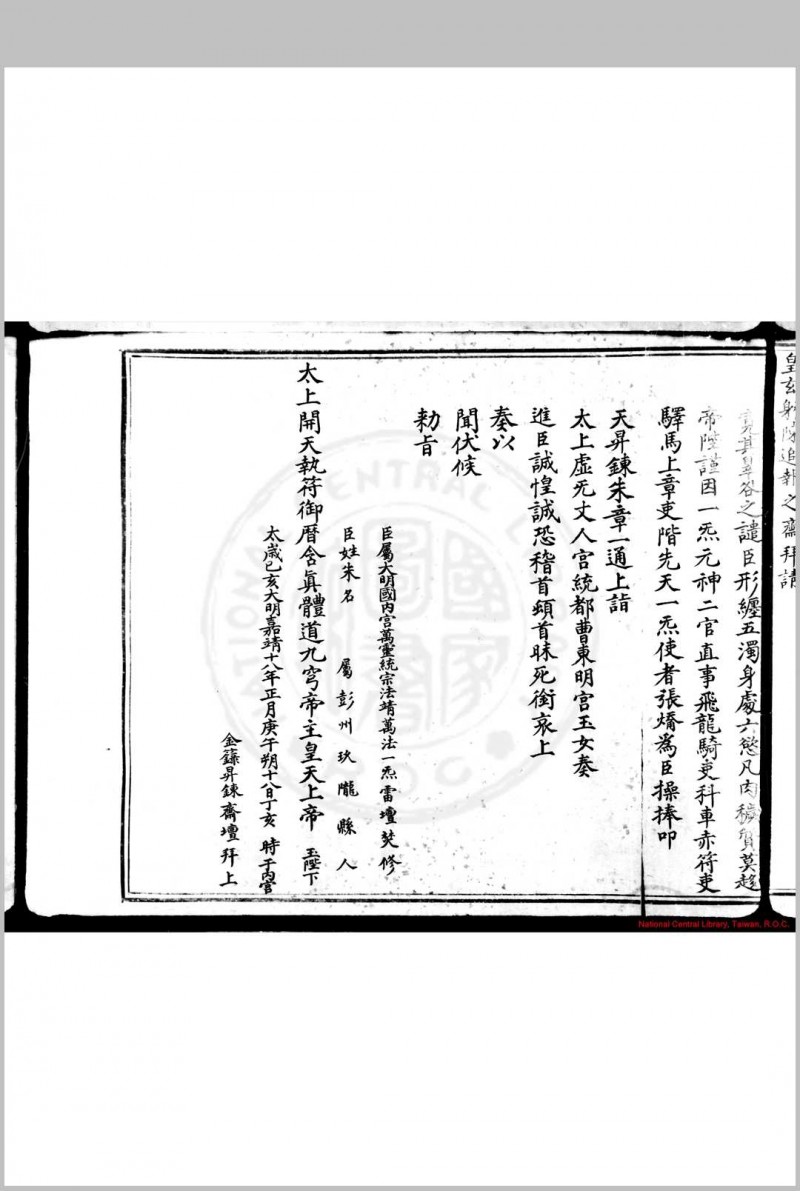 皇玄躬隊追報之齋拜請
其臯谷之譴臣形纏五濁身處六慾凡肉穢質莫趍
帝陛謹因一炁元神二官直事飛龍騎吏科車赤符吏
驛馬上章吏階先天一炁使者張燏爲臣操捧叩
天昇鍊朱章一通上詣
太上虛无丈人宫統都曹東明宫玉女奏
進臣誠惶誠恐稽首頓首昧死銜哀上
奏以
聞伏候
勅旨
臣屬大明國内宫萬靈統宗法靖萬法一炁雷壇焚修
臣姓朱名 屬彭州玖隴縣人
太上開天執符御曆含眞體道九穹帝主皇天上帝 玉陛下
太歲己亥大明嘉靖十八年正月庚午朔十八日丁亥 時于内宫
金籙昇鍊齋壇拜上
NATIONAL CENTRAL
R.O.C.
National Central Library, Taiwan, R.O.C.